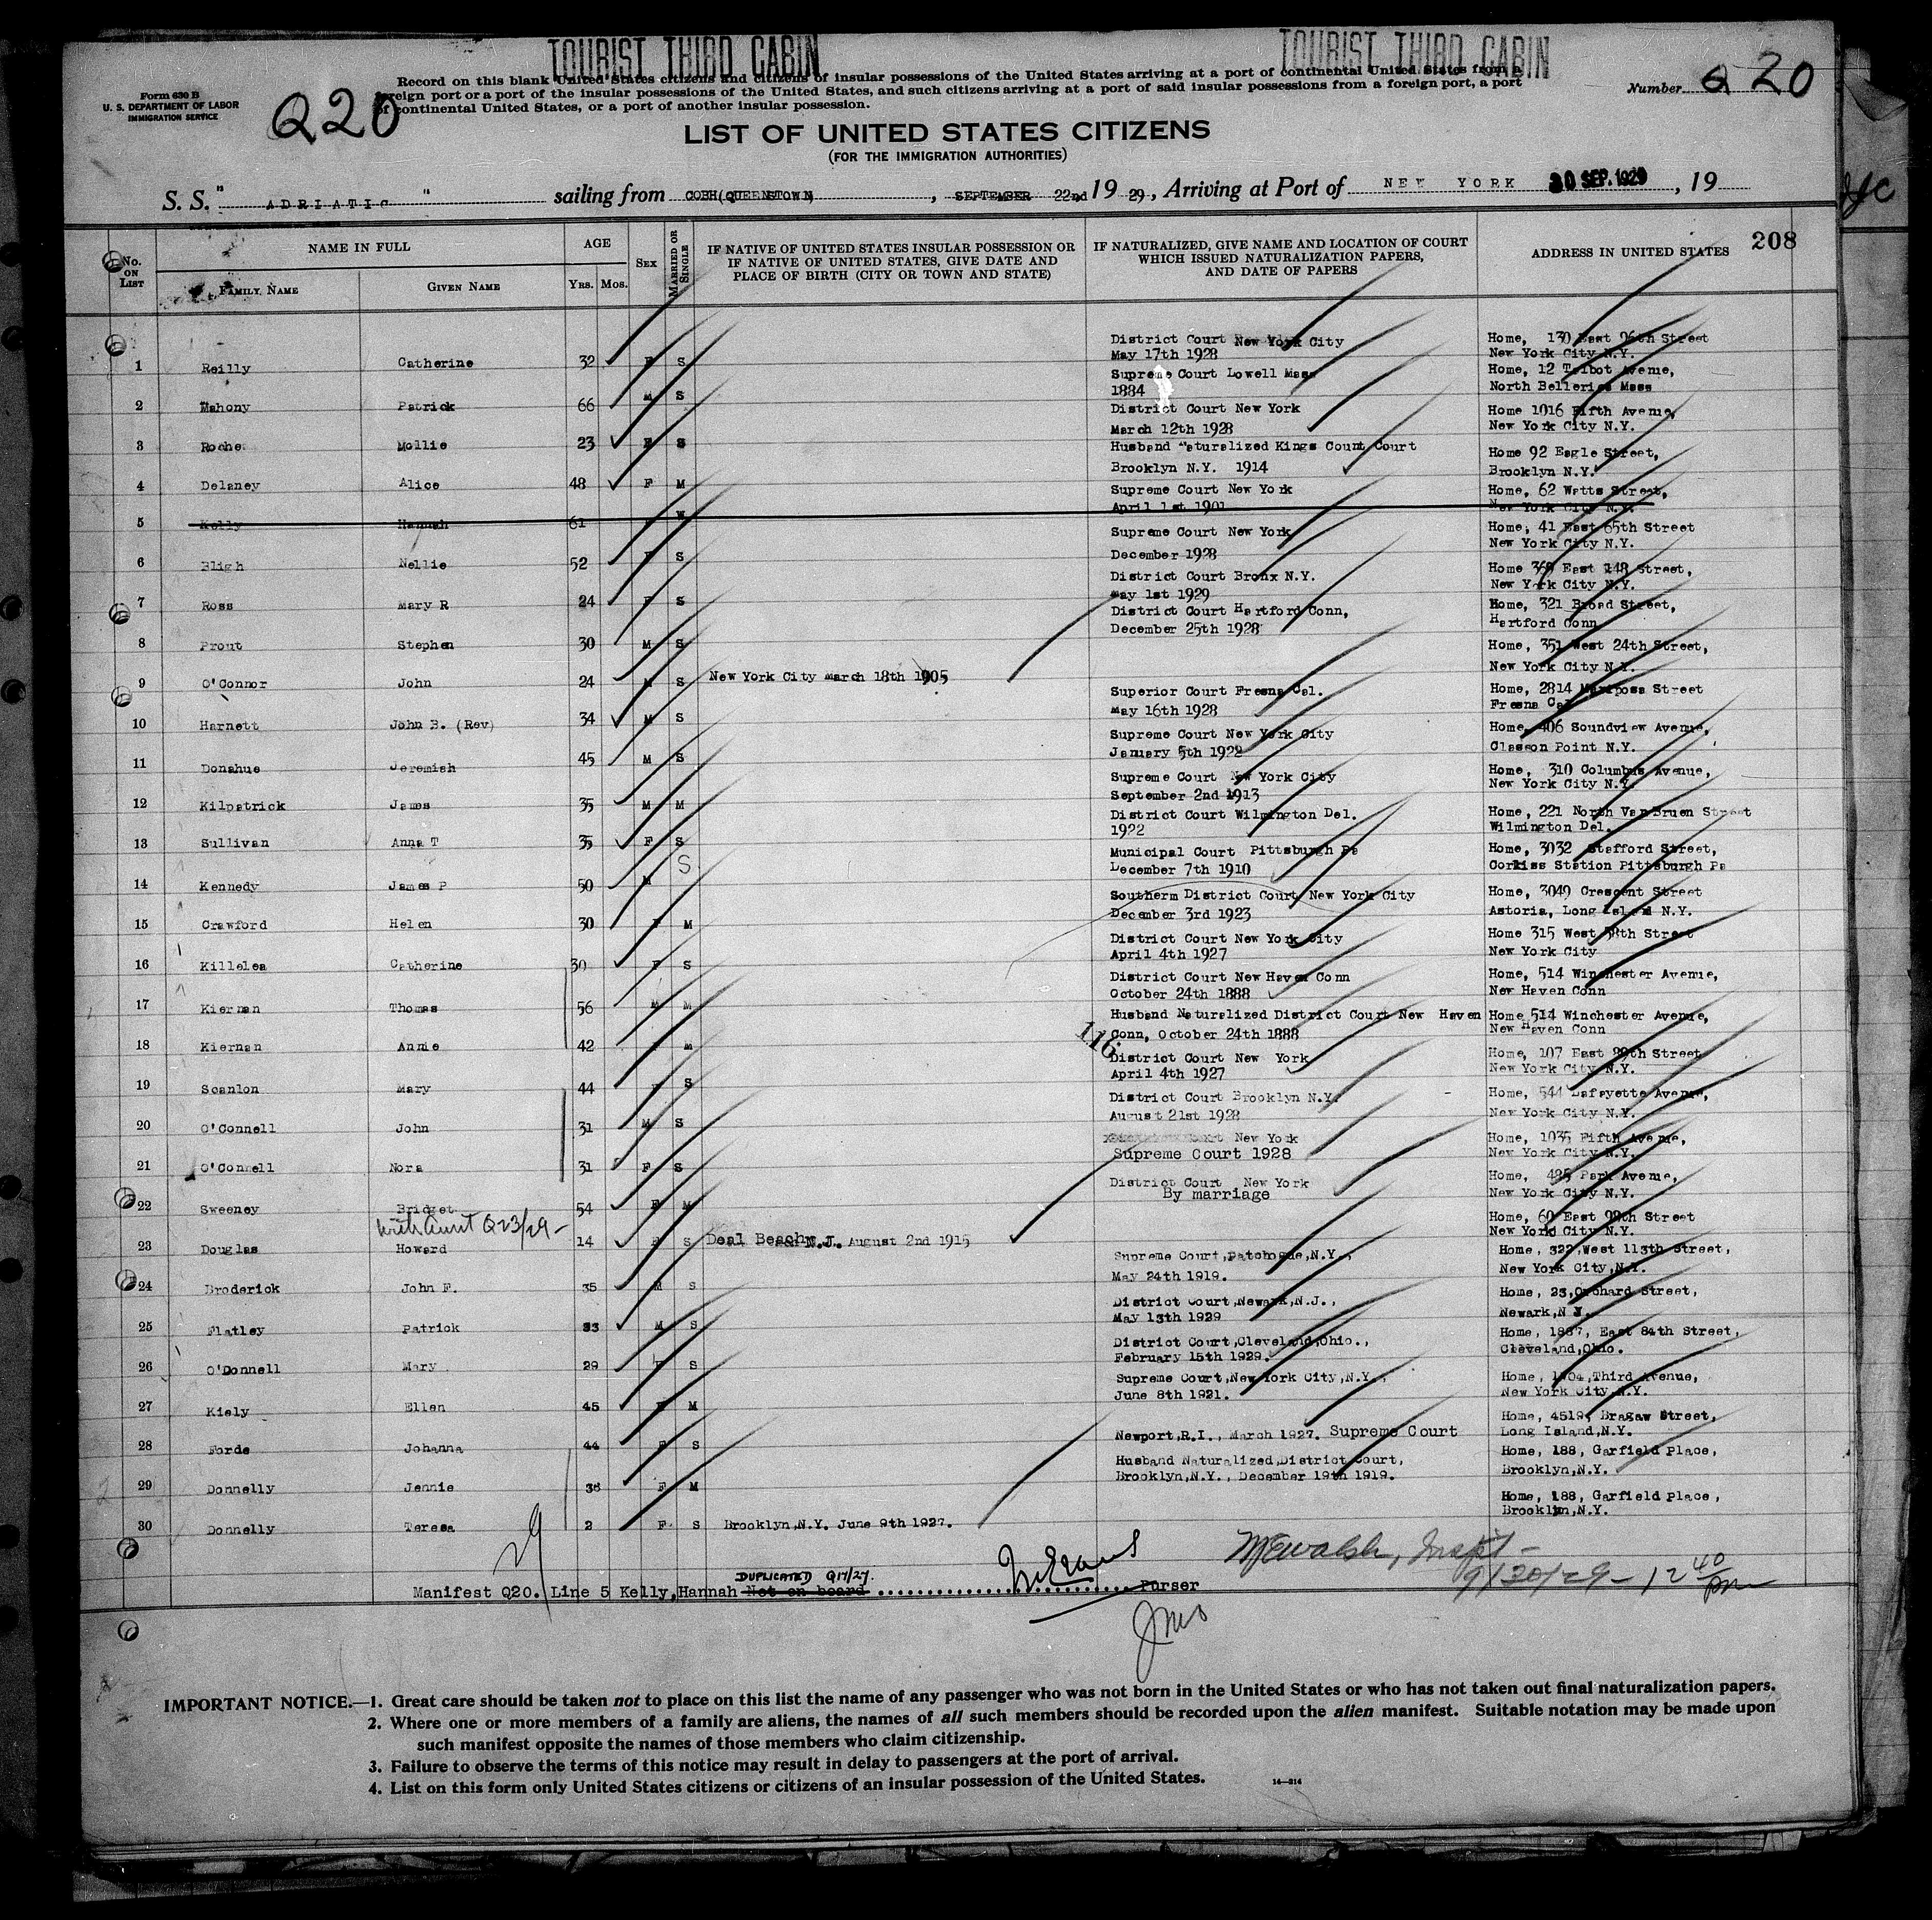 TOURIST THIRD CABIN TOURIST THIRD CABIN
Form 630 B
U. S. DEPARTMENT OF LABOR
IMMIGRATION SERVICE
Q20
Record on this blank United States citizens and citizens of insular possessions of the United States arriving at a port of continental United States from a
foreign port or a port of the insular possessions of the United States, and such citizens arriving at a port of said insular possessions from a foreign port, a port
of continental United States, or a port of another insular possession.
Number Q 20
LIST OF UNITED STATES CITIZENS
(FOR THE IMMIGRATION AUTHORITIES)
S. S. " ADRIATIC " sailing from COBH(QUEENSTOWN) , SEPTEMBER 22nd 19 29, Arriving at Port of NEW YORK 30 SEP. 1929 , 19
208
No. ON LIST
NAME IN FULL
FAMILY NAME GIVEN NAME
AGE
YRS. MOS.
SEX
MARRIED OR SINGLE
IF NATIVE OF UNITED STATES INSULAR POSSESSION OR
IF NATIVE OF UNITED STATES, GIVE DATE AND
PLACE OF BIRTH (CITY OR TOWN AND STATE)
IF NATURALIZED, GIVE NAME AND LOCATION OF COURT
WHICH ISSUED NATURALIZATION PAPERS,
AND DATE OF PAPERS
ADDRESS IN UNITED STATES
1 Reilly Catherine 32 F S District Court New York City May 17th 1928 Home, 130 East 96th Street New York City N.Y.
2 Mahony Patrick 66 M S Supreme Court Lowell Mass 1884 Home, 12 Talbot Avenue, North Bellerica Mass
3 Roche Mollie 23 F S District Court New York March 12th 1928 Home 1016 Fifth Avenue, New York City N.Y.
4 Delaney Alice 48 F M Husband Naturalized Kings Count Court Brooklyn N.Y. 1914 Home 92 Eagle Street, Brooklyn N.Y.
5 Kelly Hannah 61 F W Supreme Court New York April 1st 1901 Home, 62 Watts Street, New York City N.Y.
6 Bligh Nellie 52 F S Supreme Court New York December 1928 Home, 41 East 65th Street New York City N.Y.
7 Ross Mary R 24 F S District Court Bronx N.Y. May 1st 1929 Home 368 East 148 Street, New York City N.Y.
8 Prout Stephen 30 M S District Court Hartford Conn, December 25th 1928 Home, 321 Broad Street, Hartford Conn
9 O'Connor John 24 M S New York City March 18th 1905 Home, 351 West 24th Street, New York City N.Y.
10 Harnett John B. (Rev) 34 M S Superior Court Fresna Cal. May 16th 1928 Home, 2814 Mariposa Street Fresna Cal
11 Donahue Jeremiah 45 M S Supreme Court New York City January 5th 1922 Home, 406 Soundview Avenue, Classon Point N.Y.
12 Kilpatrick James 35 M M Supreme Court New York City September 2nd 1913 Home, 310 Columbus Avenue, New York City N.Y.
13 Sullivan Anna T 35 F S District Court Wilmington Del. 1922 Home, 221 North Van Bruen Street Wilmington Del.
14 Kennedy James P 50 M S Municipal Court Pittsburgh Pa December 7th 1910 Home, 3032 Stafford Street, Corkiss Station Pittsburgh Pa
15 Crawford Helen 30 F M Southern District Court New York City December 3rd 1923 Home, 3049 Crescent Street Astoria, Long Island N.Y.
16 Killelea Catherine 30 F S District Court New York City April 4th 1927 Home 315 West 58th Street New York City
17 Kiernan Thomas 56 M M District Court New Haven Conn October 24th 1888 Home, 514 Winchester Avenue, New Haven Conn
18 Kiernan Annie 42 F M Husband Naturalized District Court New Haven Conn, October 24th 1888 Home 514 Winchester Avenue, New Haven Conn
116
19 Scanlon Mary 44 F S District Court New York April 4th 1927 Home, 107 East 89th Street New York City N.Y.
20 O'Connell John 31 M S District Court Brooklyn N.Y. August 21st 1928 Home, 544 Lafayette Avenue, New York City N.Y.
21 O'Connell Nora 31 F S New York Supreme Court 1928 Home, 1035 Fifth Avenue, New York City N.Y.
22 Sweeney Bridget 54 F M District Court New York By marriage Home, 485 Park Avenue, New York City N.Y.
with Aunt Q23/29 -
23 Douglas Howard 14 S Deal Beach N.J. August 2nd 1915 Home, 60 East 98th Street New York City N.Y.
24 Broderick John F. 35 M S Supreme Court,Patchogue,N.Y., May 24th 1919. Home, 322,West 113th Street, New York City,N.Y.
25 Flatley Patrick 33 M S District Court,Newark,N.J., May 13th 1929 Home, 23,Orchard Street, Newark,N J.
26 O'Donnell Mary 29 F S District Court,Cleveland,Ohio., February 15th 1929. Home, 1887, East 84th Street, Cleveland,Ohio.
27 Kiely Ellen 45 F M Supreme Court,New York City,N.Y., June 8th 1921. Home, 1704,Third Avenue, New York City,N.Y.
28 Forde Johanna 44 F S Newport,R.I., March 1927. Supreme Court Home, 4519, Bragaw Street, Long Island,N.Y.
29 Donnelly Jennie 36 F M Husband Naturalized,District Court, Brooklyn,N.Y., December 19th 1919. Home, 188, Garfield Place, Brooklyn,N.Y.
30 Donnelly Teresa 2 F S Brooklyn,N.Y. June 9th 1927. Home, 188, Garfield Place, Brooklyn,N.Y.
29
DUPLICATED Q17/27.
Manifest Q20. Line 5 Kelly,Hannah Not on board Purser
Walsh, Inspt -
9/30/29 - 12 40 pm
IMPORTANT NOTICE.—1. Great care should be taken not to place on this list the name of any passenger who was not born in the United States or who has not taken out final naturalization papers.
2. Where one or more members of a family are aliens, the names of all such members should be recorded upon the alien manifest. Suitable notation may be made upon
such manifest opposite the names of those members who claim citizenship.
3. Failure to observe the terms of this notice may result in delay to passengers at the port of arrival.
4. List on this form only United States citizens or citizens of an insular possession of the United States.
14—314